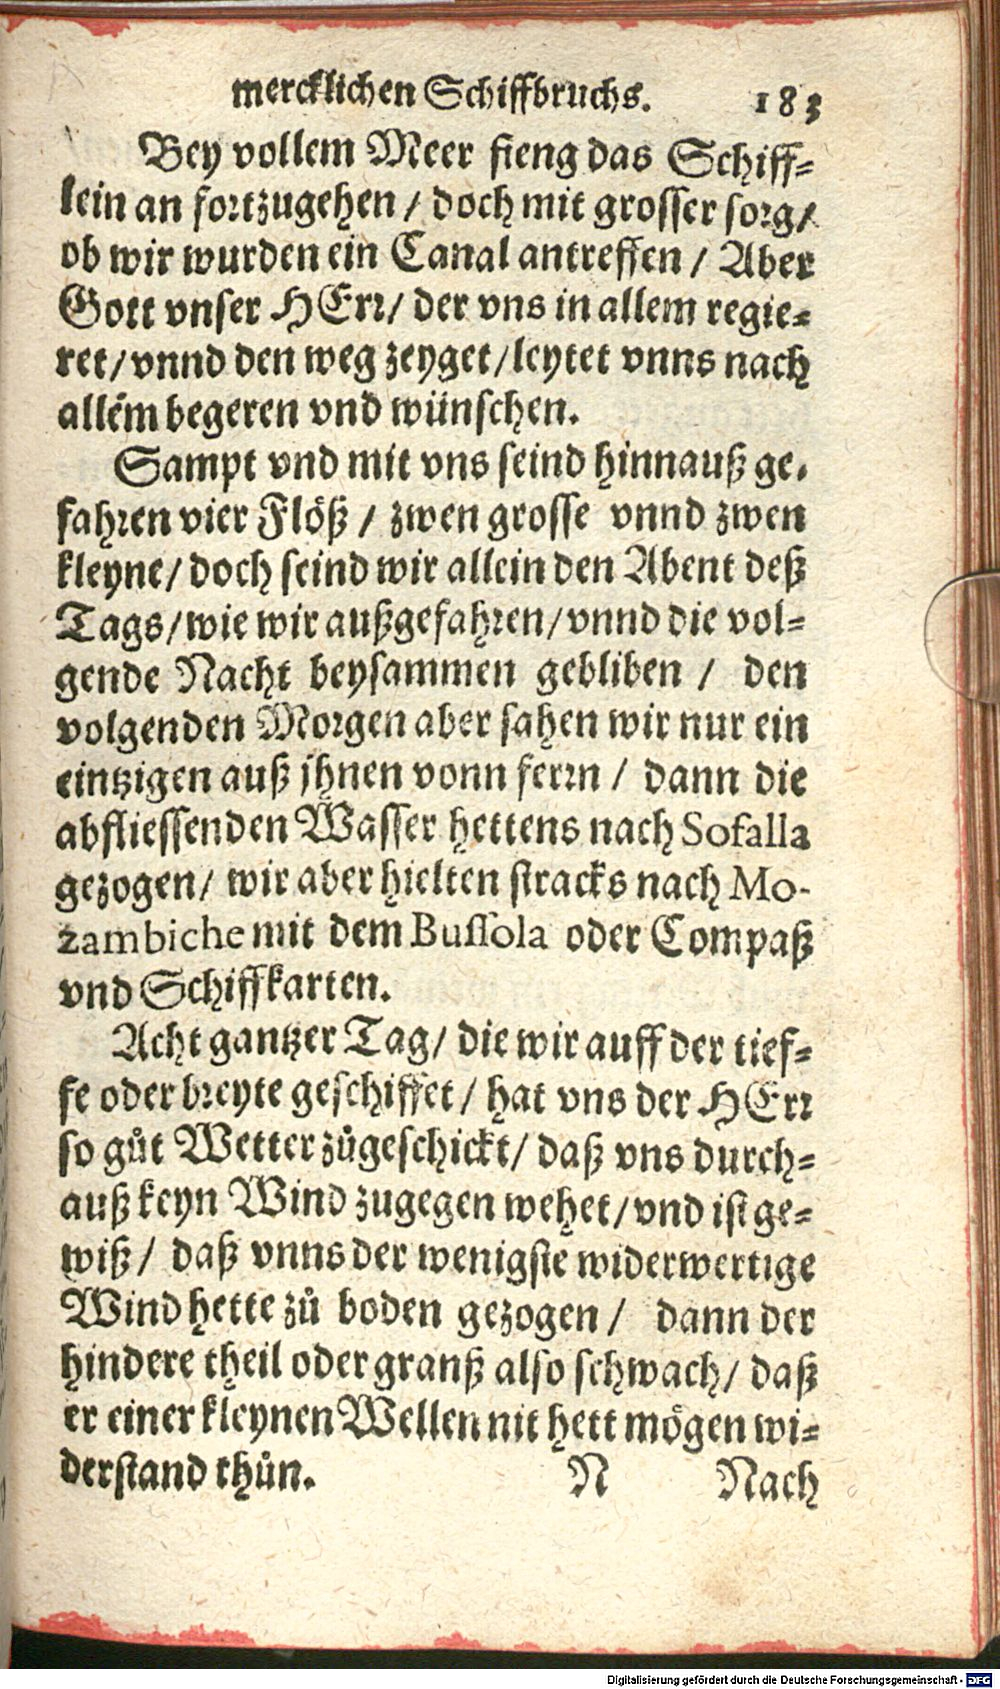 mercklichen Schiffbruchs. 183
Bey vollem Meer fieng das Schiff-
lein an fortzugehen / doch mit grosser sorg /
ob wir wurden ein Canal antreffen / Aber
Gott vnser HErr / der vns in allem regie-
ret / vnnd den weg zeyget / leytet vnns nach
allem begeren vnd wünschen.
Sampt vnd mit vns seind hinnauß ge-
fahren vier Flöß / zwen grosse vnnd zwen
kleyne / doch seind wir allein den Abent deß
Tags / wie wir außgefahren / vnnd die vol-
gende Nacht beysammen gebliben / den
volgenden Morgen aber sahen wir nur ein
eintzigen auß jhnen vonn ferrn / dann die
abfliessenden Wasser hettens nach Sofalla
gezogen / wir aber hielten stracks nach Mo-
zambiche mit dem Bussola oder Compaß
vnd Schiffkarten.
Acht gantzer Tag / die wir auff der tief-
fe oder breyte geschiffet / hat vns der HErr
so gůt Wetter zůgeschickt / daß vns durch-
auß keyn Wind zugegen wehet / vnd ist ge-
wiß / daß vnns der wenigste widerwertige
Wind hette zů boden gezogen / dann der
hindere theil oder granß also schwach / daß
er einer kleynen Wellen nit hett mögen wi-
derstand thůn. N Nach
Digitalisierung gefördert durch die Deutsche Forschungsgemeinschaft - DFG